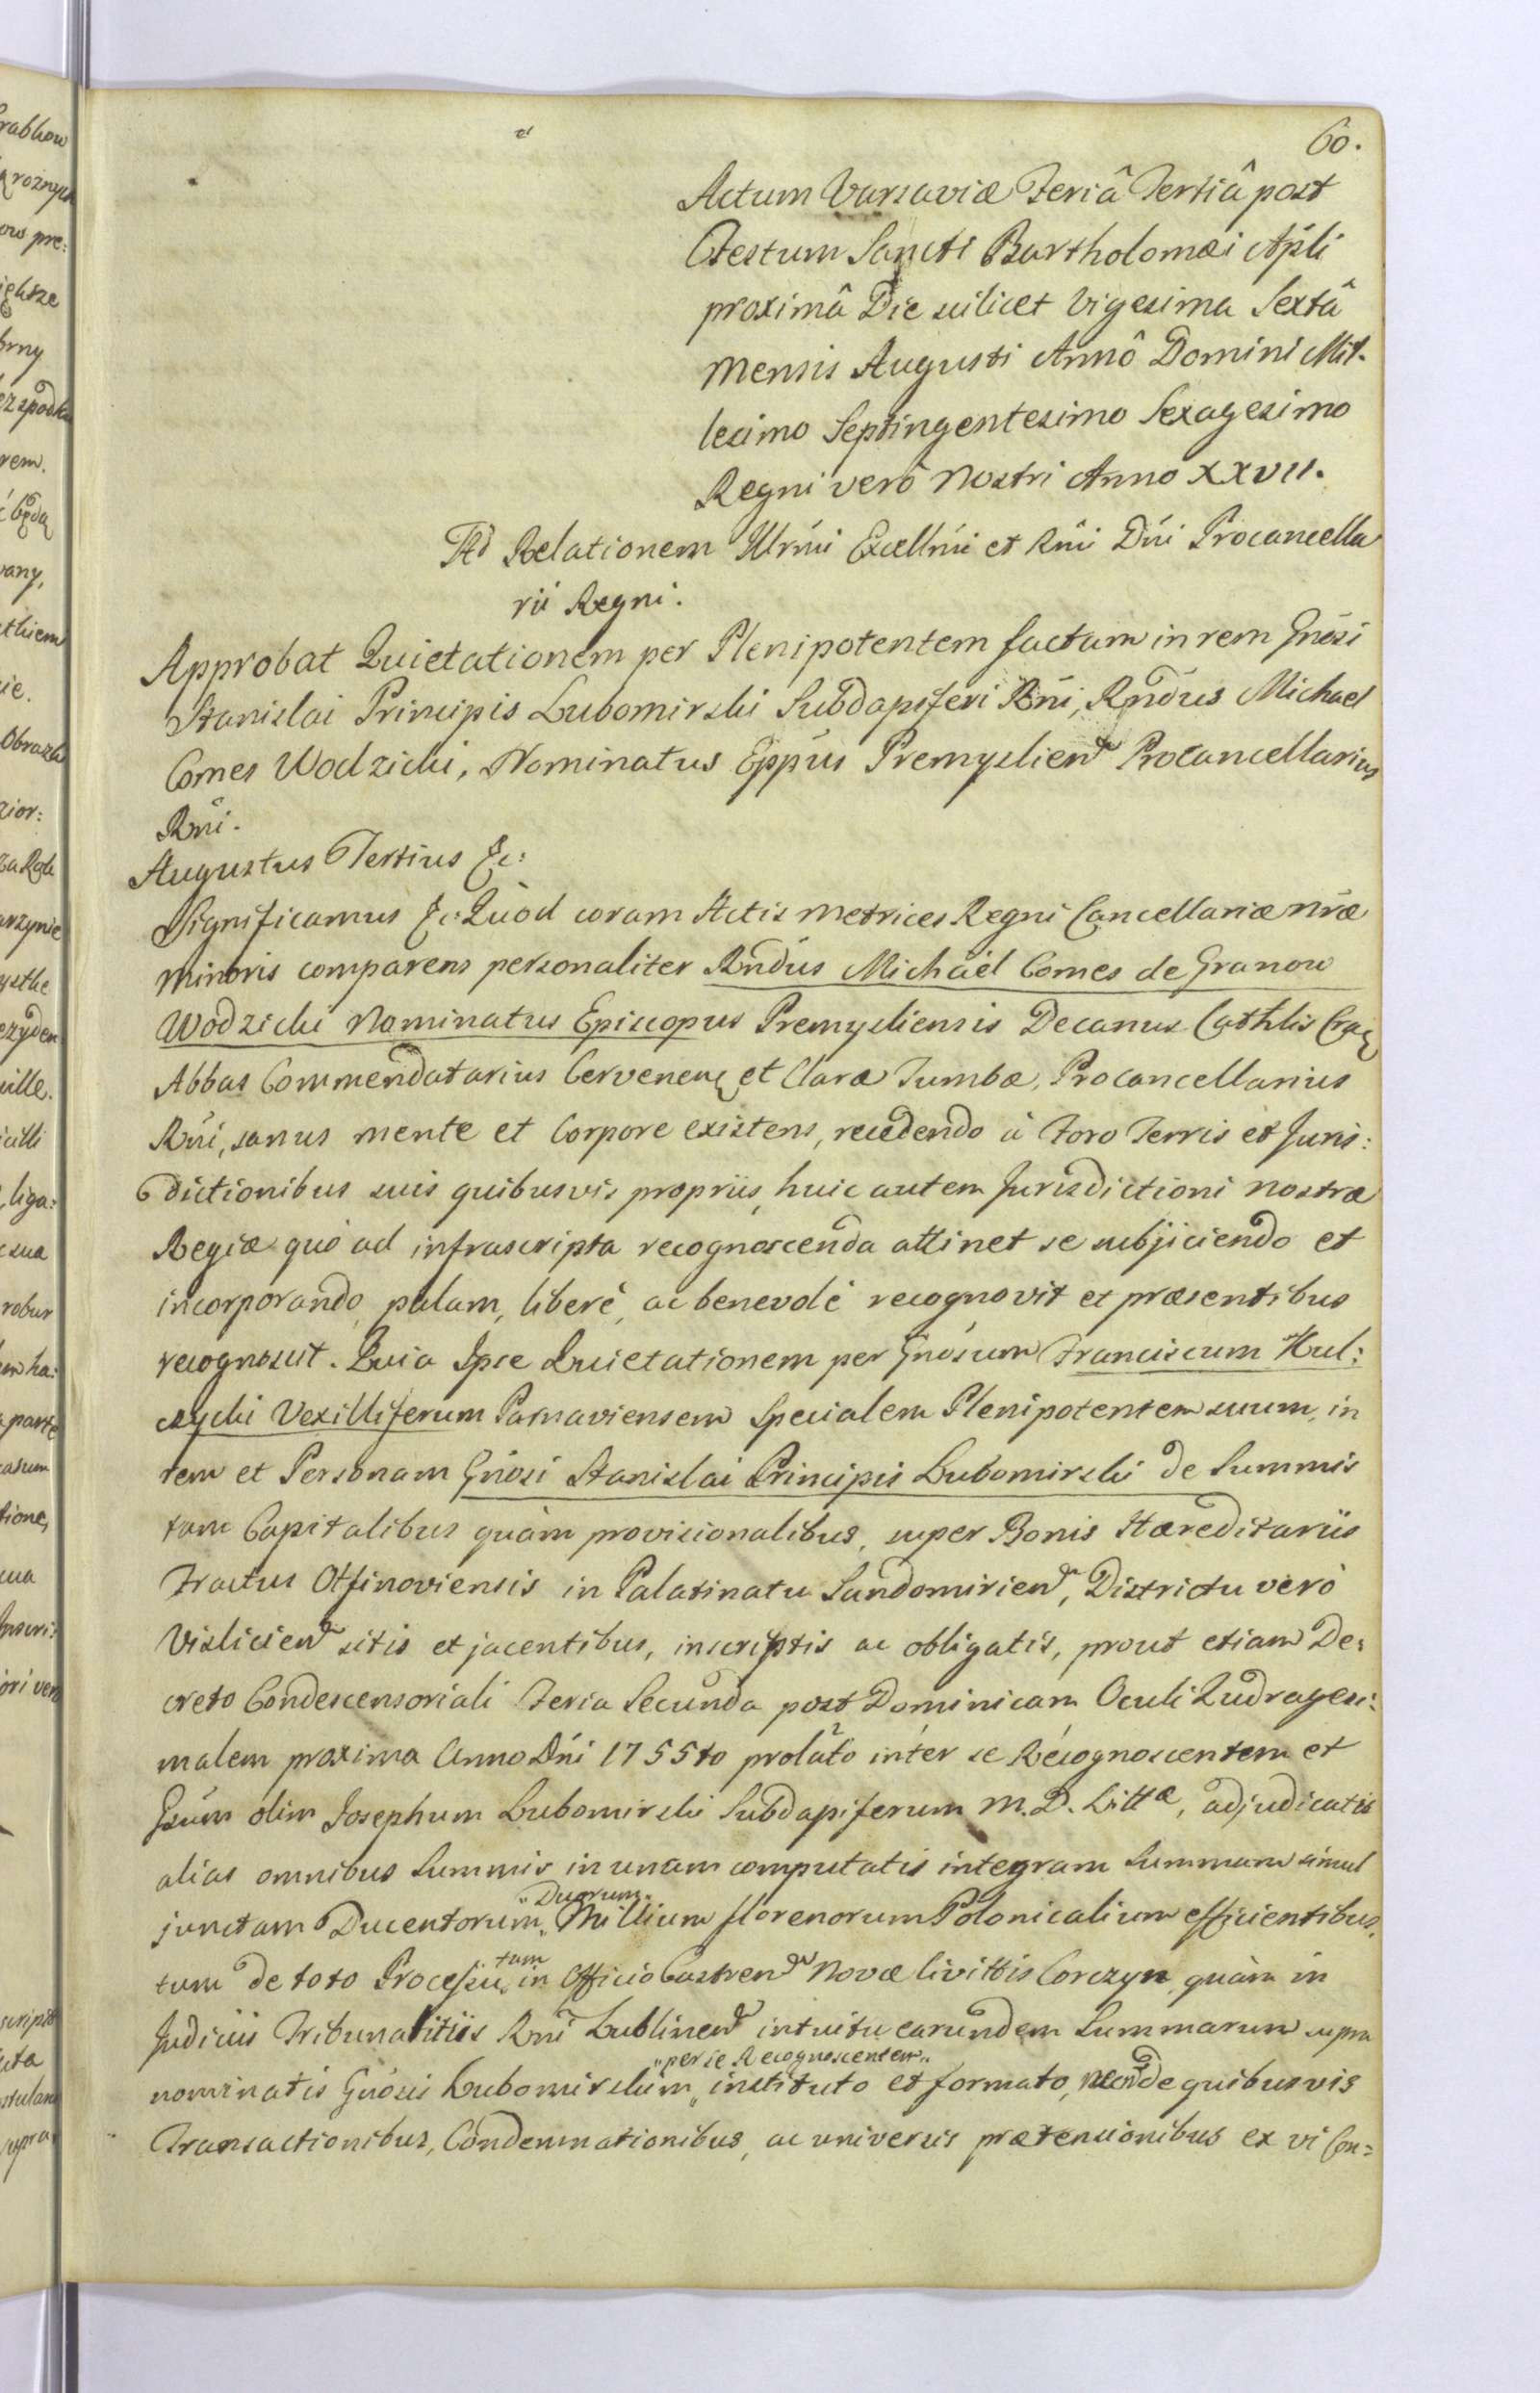 60.
Actum Varsaviæ Feriâ Tertiâ post
Festum Sancti Bartholomæi Apli
proximâ Die scilicet Vigesima Sextâ
Mensis Augusti Annô Domini Mil-
lesimo Septingentesimo Sexagesimo
Regni verò Nostri Anno XXVII.
Ad Relationem Illrmi Excellmi et Rmi Dni Procancella
rii Regni.
Approbat Quietationem per Plenipotentem factam in rem Gnosi
Stanislai Principis Lubomirski Subdapiferi Rni, Rndus Michael
Comes Wodzicki, Nominatus Eppus Premyslien Procancellarius
Rni.
Augustus Tertius &c:
Significamus &c: Quod coram Actis Metrices Regni Cancellariæ Nræ
Minoris comparens personaliter Rndus Michaël Comes de Granow
Wodzicki Nominatus Episcopus Premysliensis Decanus Cathlis Crac
Abbas Commendatarius Cervenen et Claræ Tumbæ, Procancellarius
Rni, sanus mente et Corpore existens, recedendo à Foro Terris et Juris:
dictionibus suis quibusvis propriis, huic autem Jurisdictioni Nostræ
Regiæ quò ad infrascripta recognoscenda attinet se subjiciendo et
incorporando, palam, liberè, ac benevolè recognovit et præsentibus
recognoscit. Quia Ipse Quietationem per Gnosum Franciscum Hul:
czycki Vexilliferum Parnaviensem Specialem Plenipotentem suum, in
rem et Personam Gnosi Stanislai Principis Lubomirski de Summis
tam Capitalibus quàm provisionalibus, super Bonis Hæreditariis
Tractus Otfinoviensis in Palatinatu Sandomirien, Districtu verò
Vislicien sitis et jacentibus, inscriptis ac obligatis, prout etiam De:
creto Condescensoriali Feria Secunda post Dominicam Oculi Qudragesi:
malem proxima Anno Dni 1755to prolato inter se Recognoscentem et
Gsum olim Josephum Lubomirski Subdapiferum M. D. Littæ, adjudicatis
alias omnibus Summis in unam computatis integram Summam simul
junctam Ducentorum „Duorum„ Millium florenorum Polonicalium efficientibus,
tum de toto Processu, tam in Officio Castren Novæ Civittis Corczyn, quàm in
Judiciis Tribunalitiis Rni Lublinen intuitu earundem Summarum supra
nominatis Gnosis Lubomirskim „per se Recognoscentem„ instituto et formato, de quibusvis
Transactionibus, Condemnationibus, ac universis prætensionibus ex vi Con=